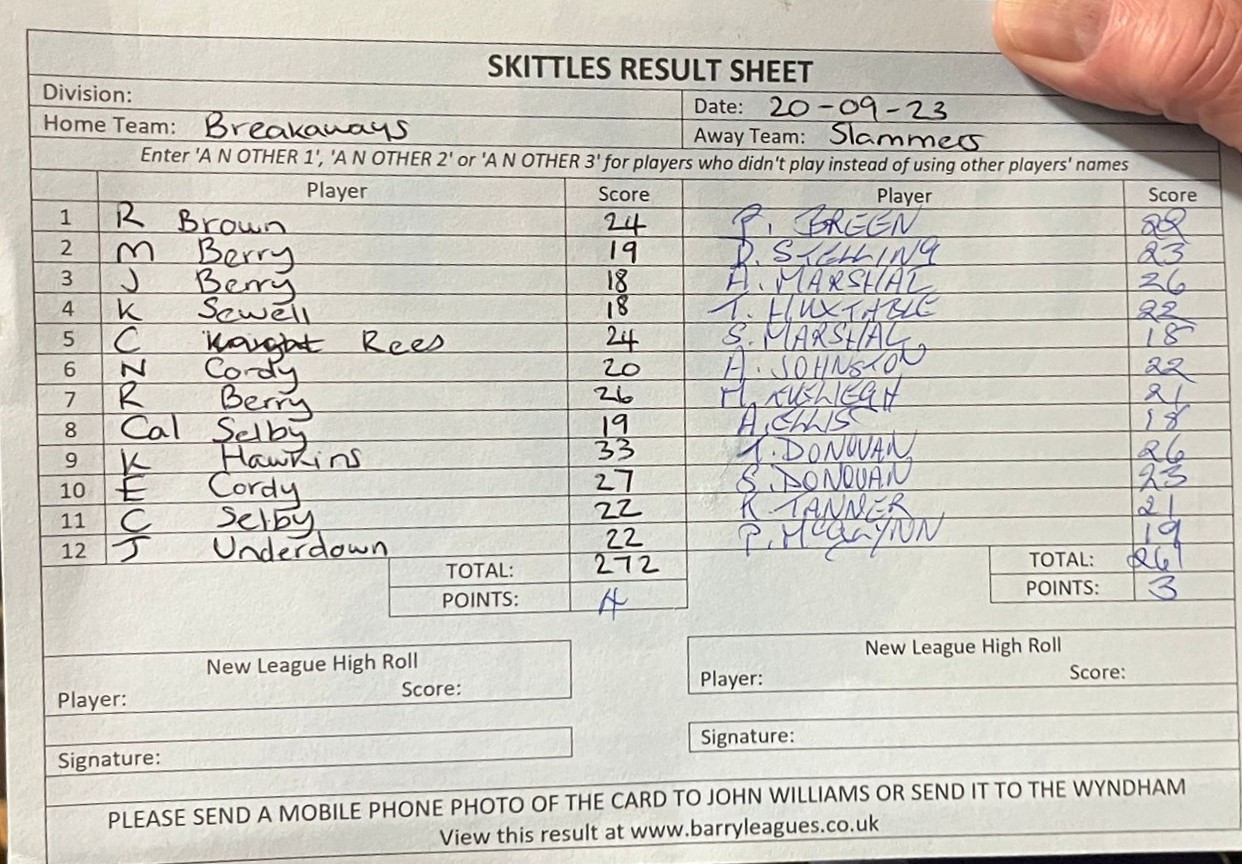 SKITTLES RESULT SHEET
Division: Date: 20-09-23
Home Team: Breakaways Away Team: Slammers
Enter 'A N OTHER 1', 'A N OTHER 2' or 'A N OTHER 3' for players who didn't play instead of using other players' names
Player Score Player Score
1 R Brown 24 P. BREEN 22
2 M Berry 19 D. 23
3 J Berry 18 A. MARSHAL 26
4 K Sewell 18 T. HUXTABLE 22
5 C Rees 24 S. MARSHAL 18
6 N Cordy 20 A. JOHNSTON 22
7 R Berry 26 M. 21
8 Cal Selby 19 A. ELLIS 18
9 K Hawkins 33 DONOVAN 26
10 E Cordy 27 S. DONOVAN 23
11 C Selby 22 R. TANNER 21
12 J Underdown 22 P. McGLYNN 19
TOTAL: 272 TOTAL: 261
POINTS: 4 POINTS: 3
New League High Roll New League High Roll
Player: Score: Player: Score:
Signature: Signature:
PLEASE SEND A MOBILE PHONE PHOTO OF THE CARD TO JOHN WILLIAMS OR SEND IT TO THE WYNDHAM
View this result at www.barryleagues.co.uk